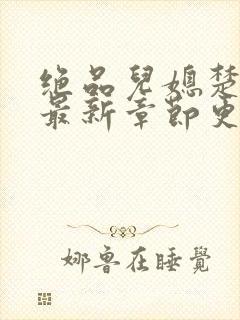 绝品兒媳楚
最新章節更
娜魯在睡覺